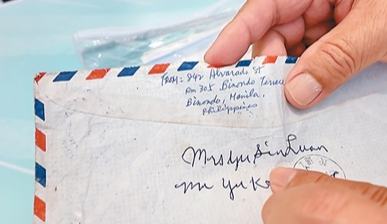 FROM: 942 Alvarado St
Rm 305 Binondo Terrace
Binondo, Manila,
Philippines
Mrs Yu Sin Luan
Yu